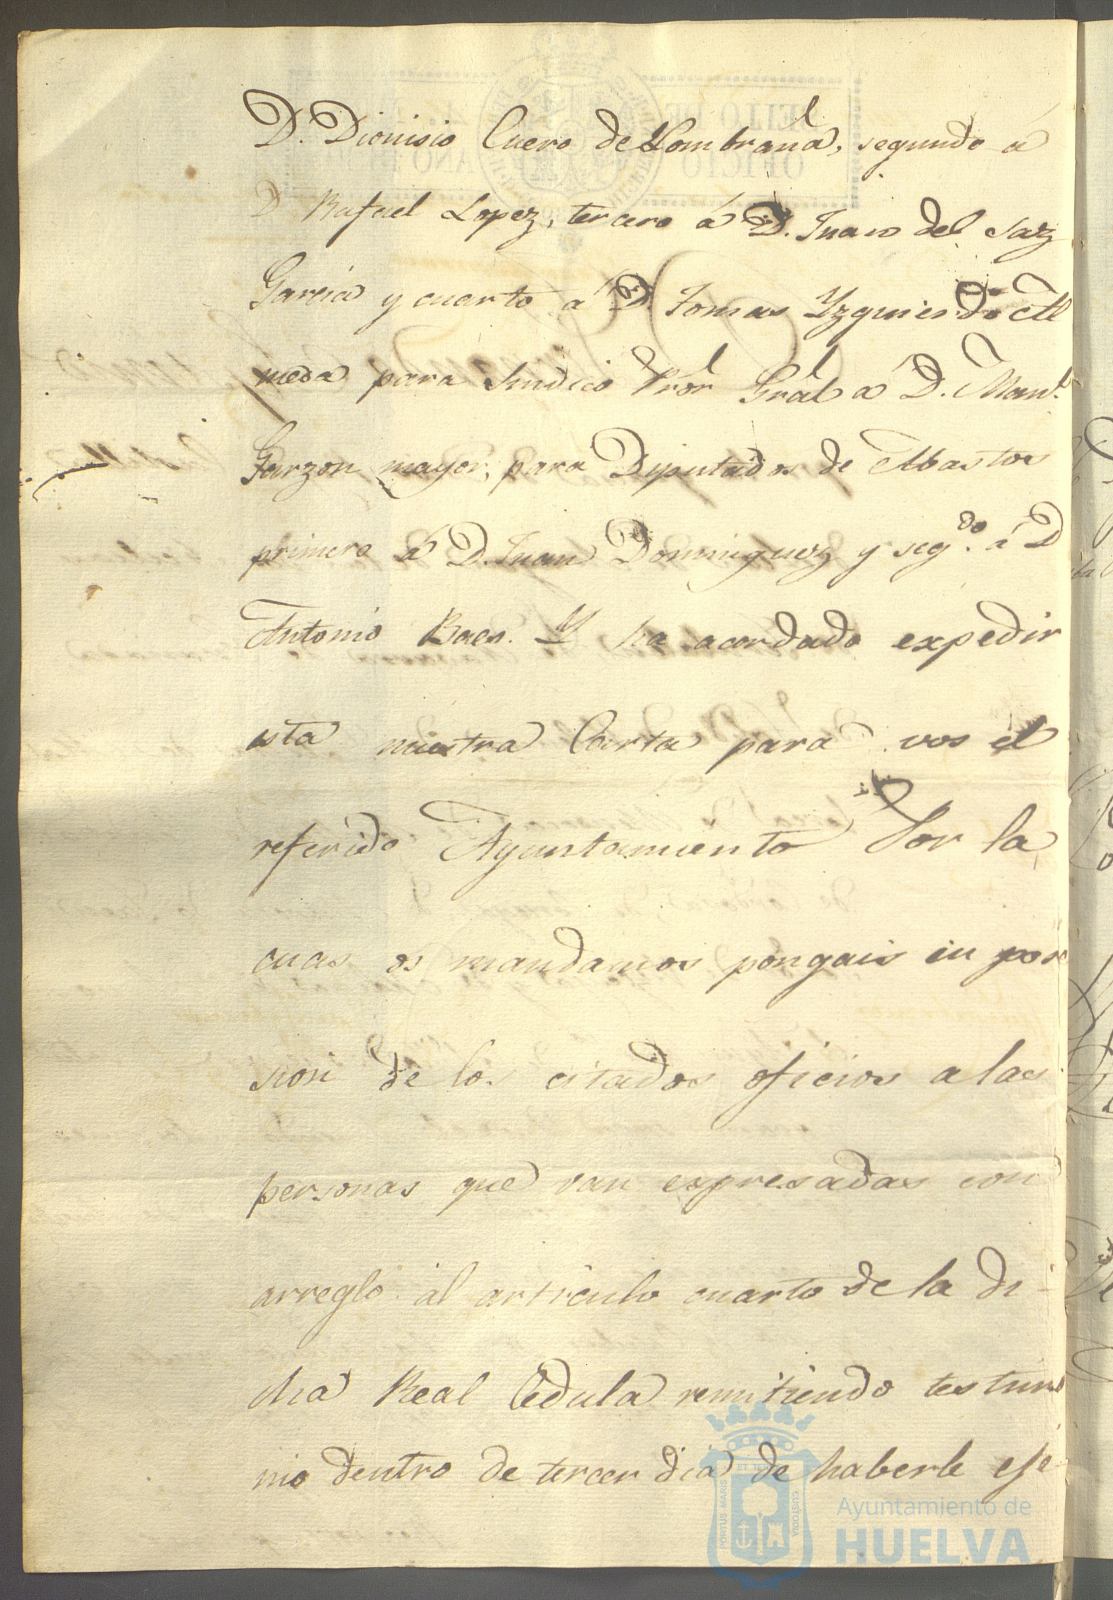 D. Dionisio Cuero de Lombraña, segundo á
D Rafael Lopez, tercero á D. Juan del Saz
Garcia y cuarto á D. Tomas Yzquierdo Al
meda para Sindico Pror Gral á D. Manl.
Garzon mayor, para Diputados de Abastos
primero á D. Juan Dominguez y segdo. á D
Antonio Baes. Y ha acordado expedir
esta nuestra Carta para vos el
referido Ayuntamiento Por la
cual os mandamos pongais en pose
sion de los citados oficios a las
personas que van expresadas con
arreglo al articulo cuarto de la di-
cha Real Cedula remitiendo testimo
nio dentro de tercer dia de haberle efe
SELLO DE
OFICIO
PORTUS MARIS ET TERRAE CUSTODIA
Ayuntamiento de
HUELVA